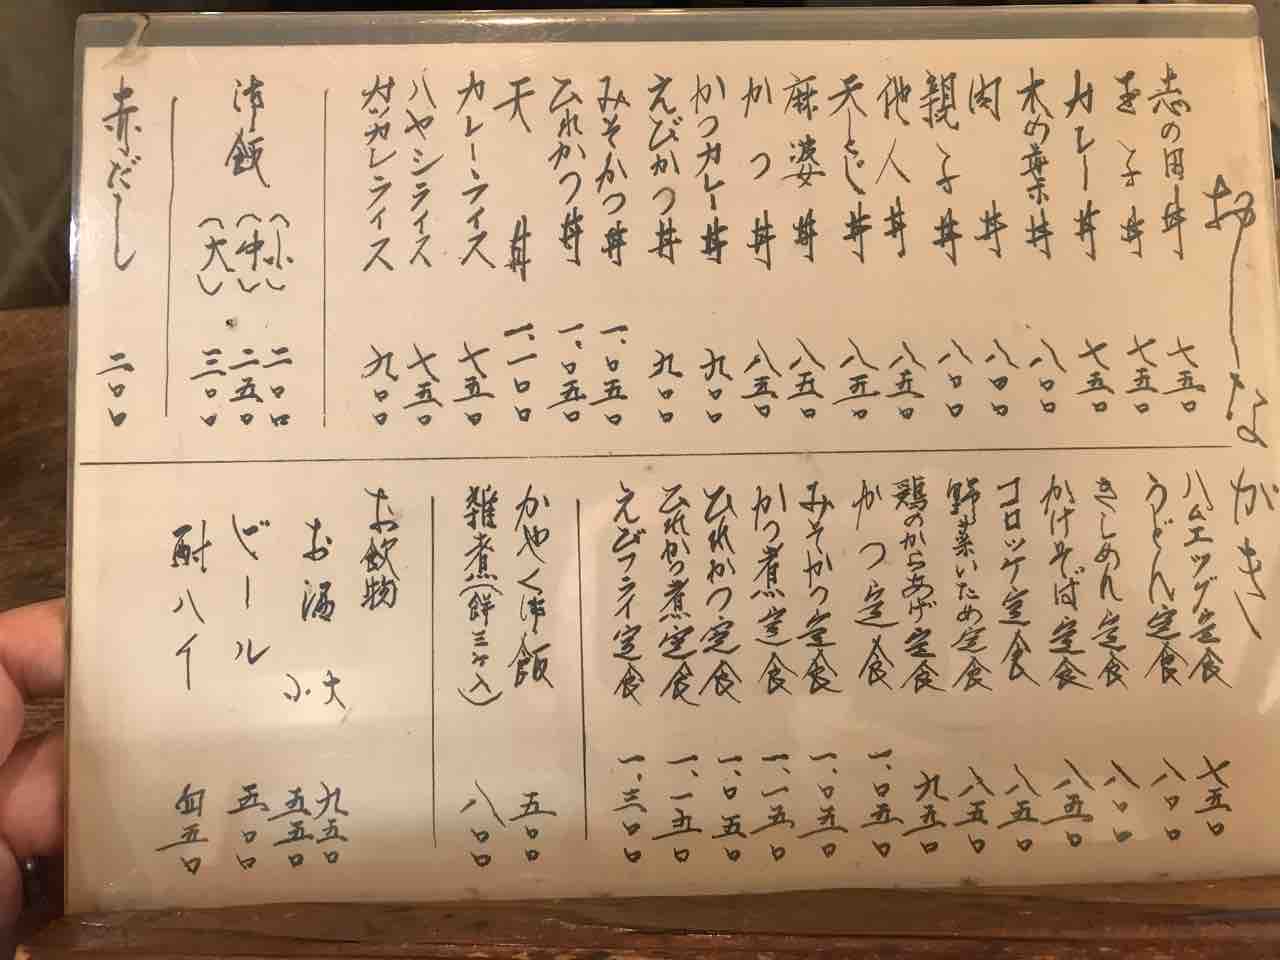 おしながき
志の田丼 七五〇
玉子丼 七五〇
カレー丼 七五〇
木の葉丼 八〇〇
肉丼 八〇〇
親子丼 八〇〇
他人丼 八五〇
天とじ丼 八五〇
麻婆丼 八五〇
かつ丼 八五〇
かつカレー丼 九〇〇
えびかつ丼 九〇〇
みそかつ丼 一、〇五〇
ひれかつ丼 一、〇五〇
天丼 一、一〇〇
カレーライス 七五〇
ハヤシライス 七五〇
カツカレライス 九〇〇
御飯 (小) 二〇〇
(中) 二五〇
(大) 三〇〇
赤だし 二〇〇
ハムエッグ定食 七五〇
うどん定食 八〇〇
きしめん定食 八〇〇
かけそば定食 八五〇
コロッケ定食 八五〇
野菜いため定食 八五〇
鶏のからあげ定食 九五〇
かつ定食 一、〇五〇
みそかつ定食 一、〇五〇
かつ煮定食 一、一五〇
ひれかつ定食 一、〇五〇
ひれかつ煮定食 一、一五〇
えびフライ定食 一、三〇〇
かやく御飯 五〇〇
雑煮(餅三ヶ入) 八〇〇
お飲物
お酒 大 九五〇
小 五五〇
ビール 五〇〇
酎ハイ 四五〇